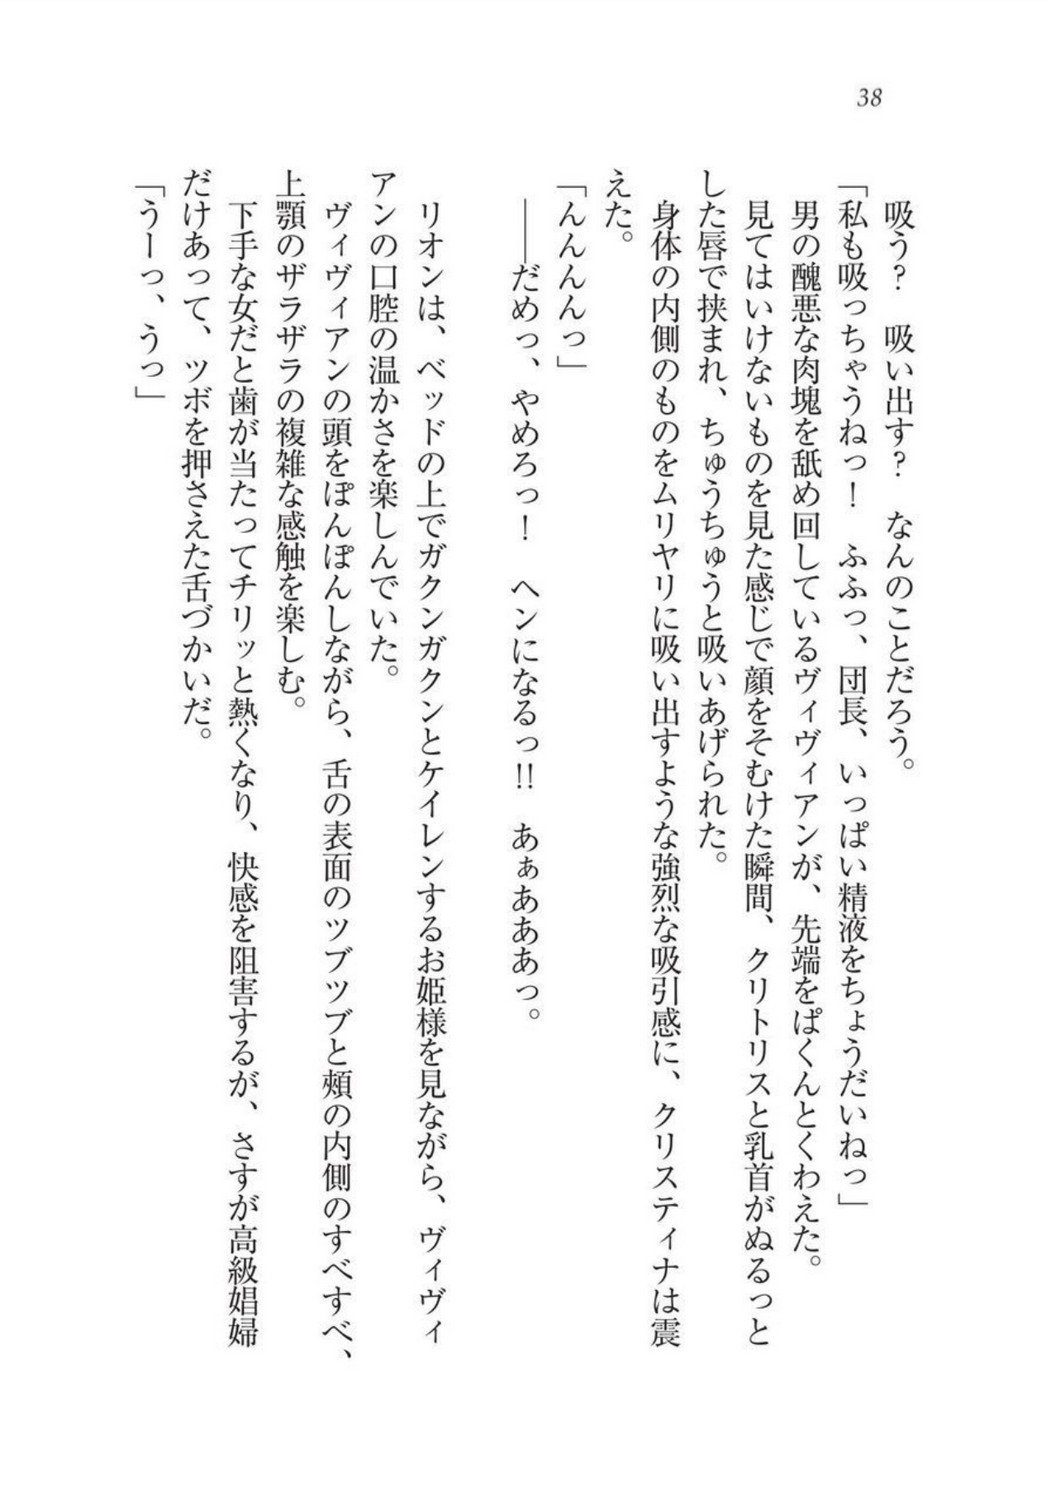 38
吸う？　吸い出す？　なんのことだろう。
「私も吸っちゃうねっ！　ふふっ、団長、いっぱい精液をちょうだいねっ」
男の醜悪な肉塊を舐め回しているヴィヴィアンが、先端をぱくんとくわえた。
見てはいけないものを見た感じで顔をそむけた瞬間、クリトリスと乳首がぬるっと
した唇で挟まれ、ちゅうちゅうと吸いあげられた。
身体の内側のものをムリヤリに吸い出すような強烈な吸引感に、クリスティナは震
えた。
「んんんんっ」
――だめっ、やめろっ！　ヘンになるっ!!　あぁあああっ。
リオンは、ベッドの上でガクンガクンとケイレンするお姫様を見ながら、ヴィヴィ
アンの口腔の温かさを楽しんでいた。
ヴィヴィアンの頭をぽんぽんしながら、舌の表面のツブツブと頰の内側のすべすべ、
上顎のザラザラの複雑な感触を楽しむ。
下手な女だと歯が当たってチリッと熱くなり、快感を阻害するが、さすが高級娼婦
だけあって、ツボを押さえた舌づかいだ。
「うーっ、うっ」